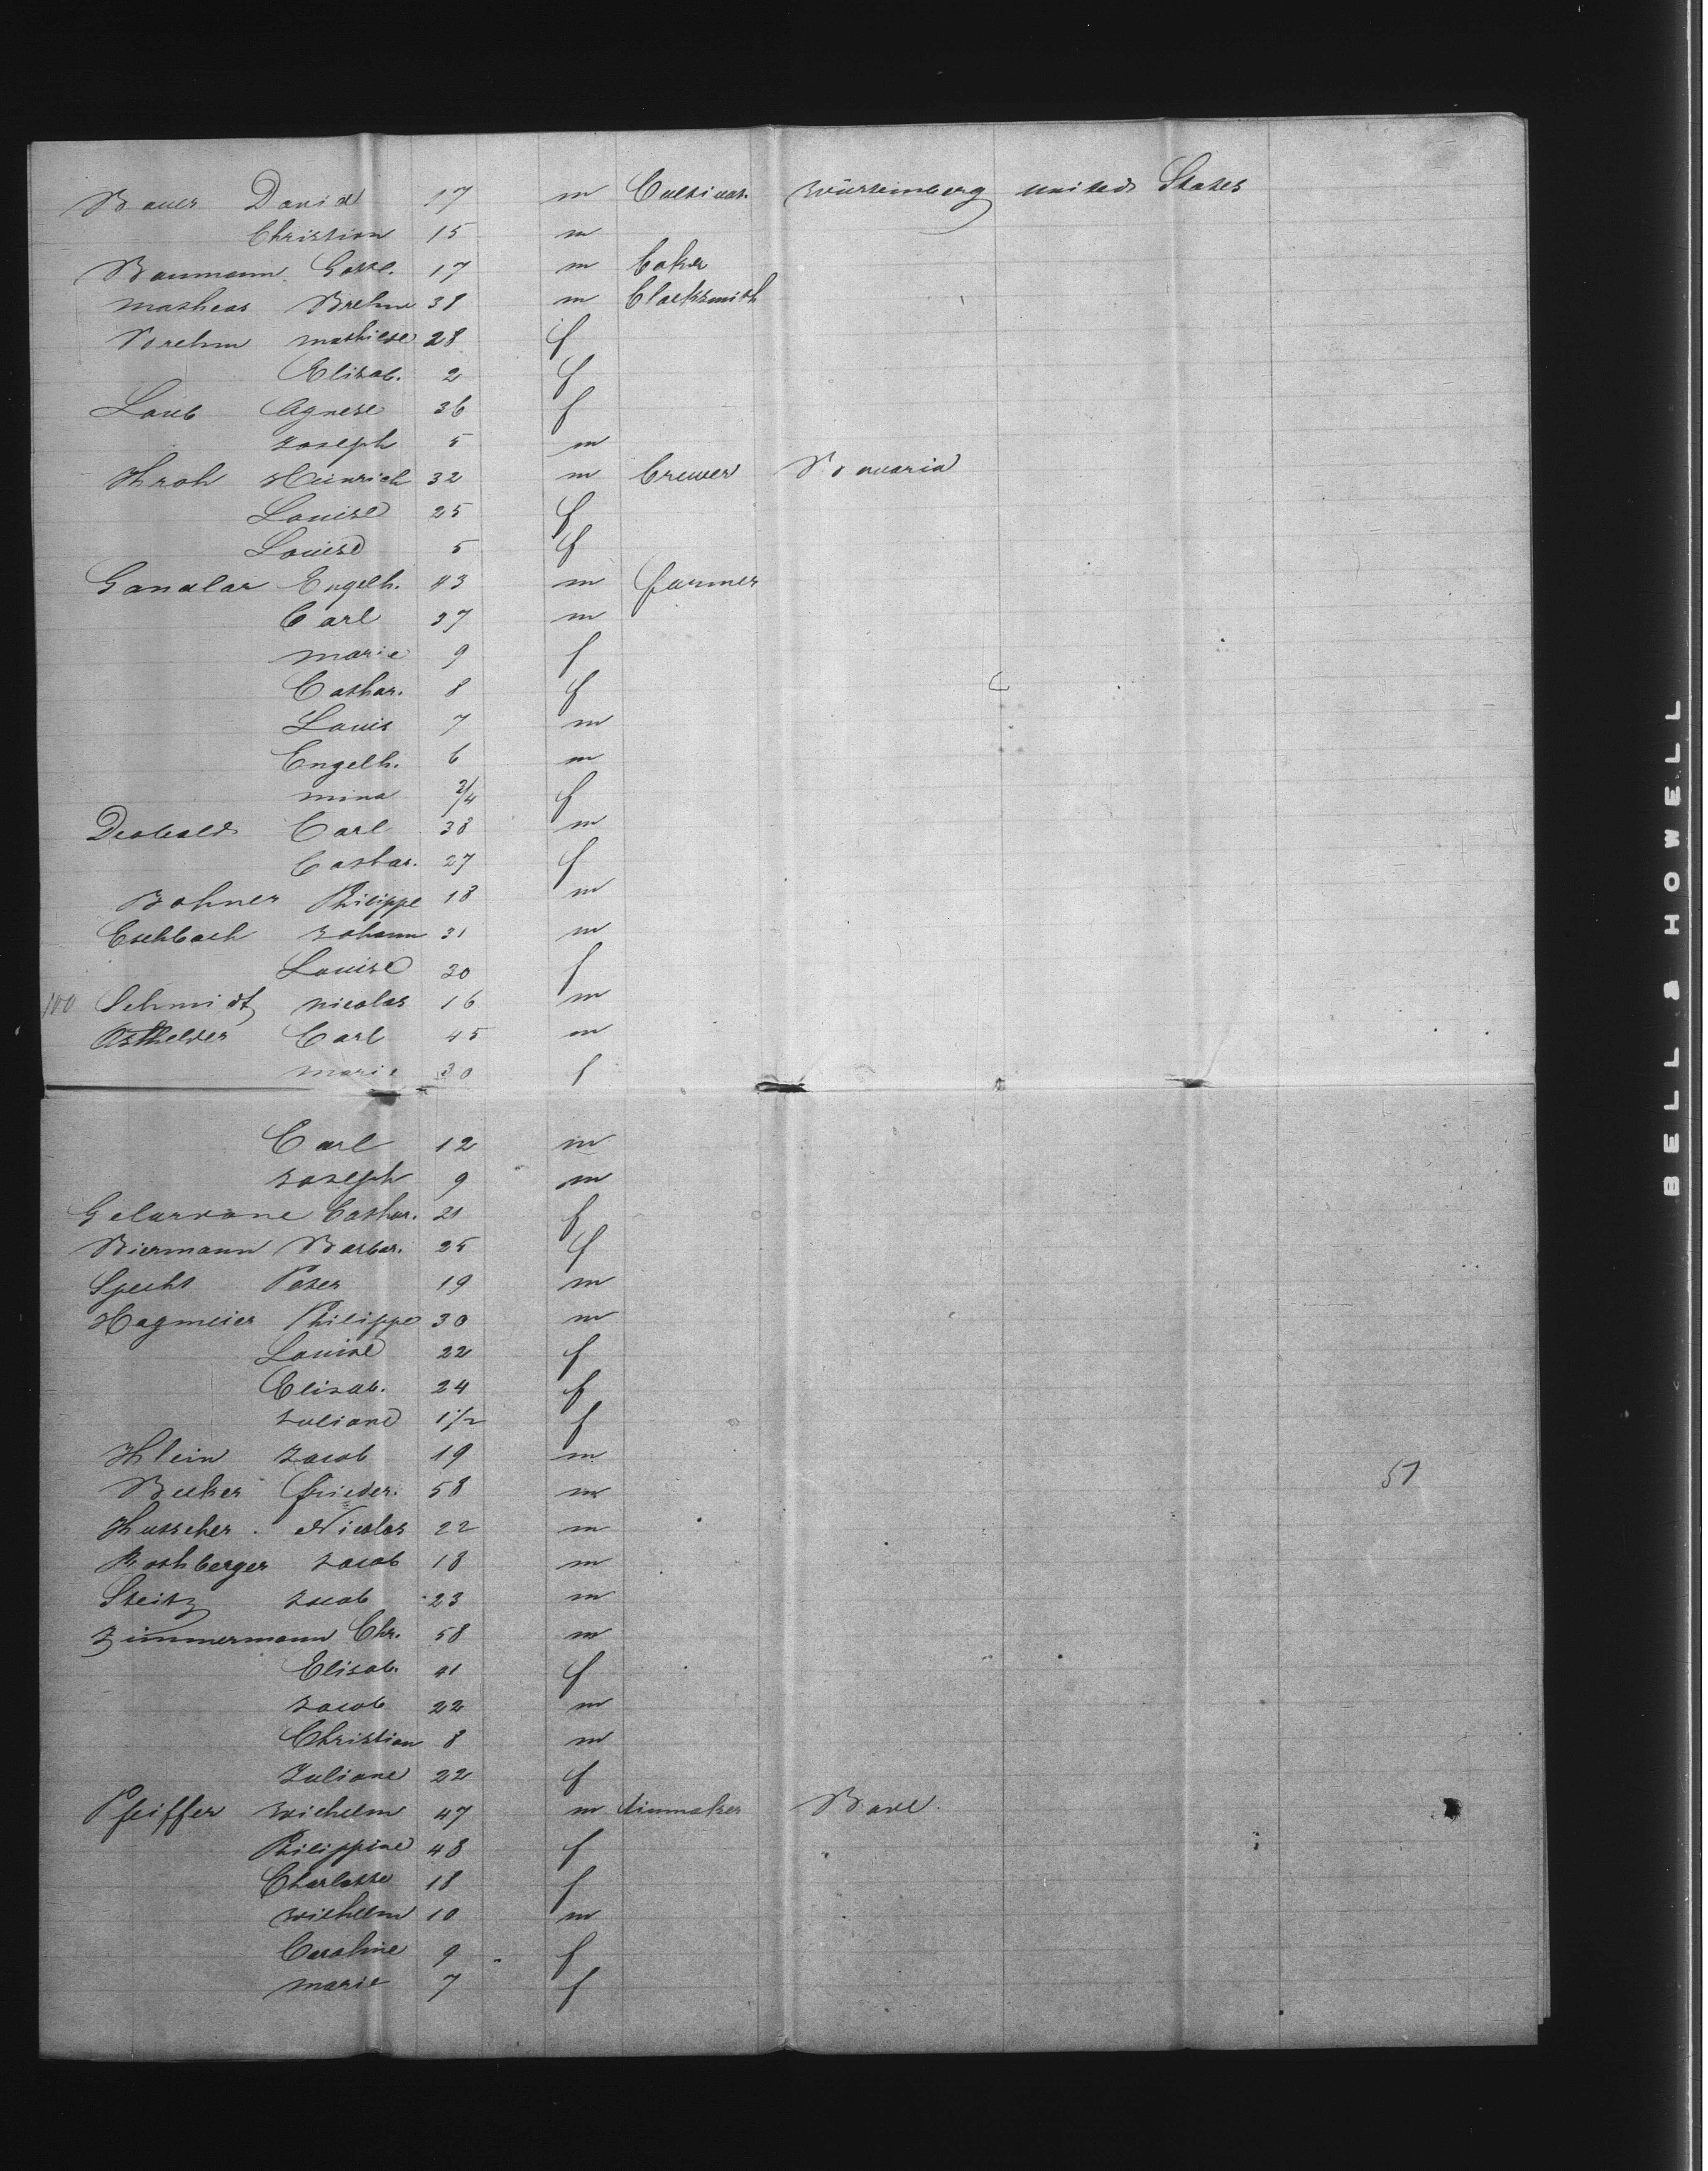 Bauer David 17 m Cultivat. Würtemberg united States
Christian 15 m
Baumann Gottl. 17 m baker
Matheas Brehm 38 m blacksmith
Brehm Mathilde 28 f
Elisab. 2 f
Laub Agnese 36 f
Joseph 5 m
Kroh Heinrich 32 m brewer Bavaria
Louise 25 f
Louise 5 f
Gandlar Engelh. 43 m farmer
Carl 37 m
Marie 9 f
Cathar. 8 f
Louis 7 m
Engelh. 6 m
Mina 2/4 f
Deobald Carl 38 m
Cathar. 27 f
Bohner Philippe 18 m
Eschbach Johann 31 m
Louise 30 f
100 Schmidt Nicolas 16 m
Carl 45 m
Marie 30 f
Carl 12 m
Joseph 9 m
Cathar. 21 f
Biermann Barbar. 25 f
Specht Peter 19 m
Hagmeier Philippe 30 m
Louise 22 f
Elisab. 24 f
Juliane 1 1/2 f
Klein Jacob 19 m
Becker Frieder. 58 m 51
Kutscher Nicolas 22 m
Rothberger Jacob 18 m
Steitz Jacob 23 m
Zimmermann Chr. 58 m
Elisab. 41 f
Jacob 22 m
Christian 8 m
Juliane 22 f
Pfeiffer Wilhelm 47 m tinmaker Bade
Philippine 48 f
Charlotte 18 f
Wilhelm 10 m
Caroline 9 f
Marie 7 f
BELL & HOWELL